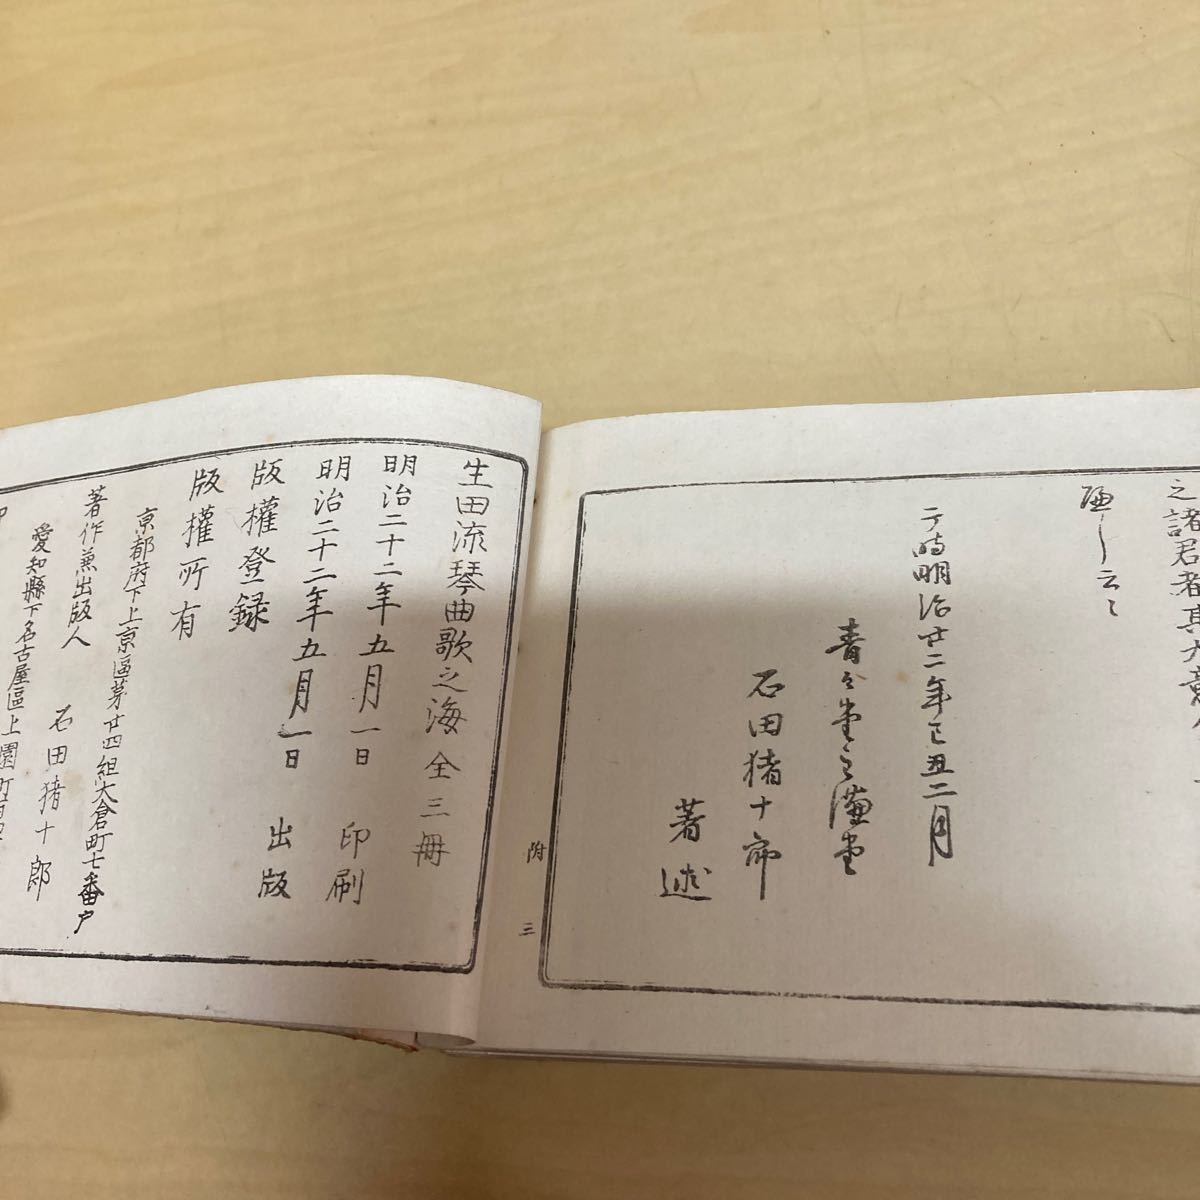 之諸君者其
云々
于時明治廿二年己丑二月
青々堂
石田猪十郎
著述
附
三
生田流琴曲歌之海 全三冊
明治二十二年五月一日 印刷
明治二十二年五月一日 出版
版權登録
版權所有
京都府下上京區第廿四組大倉町七番戸
著作兼出版人 石田猪十郎
愛知縣下名古屋區上園町